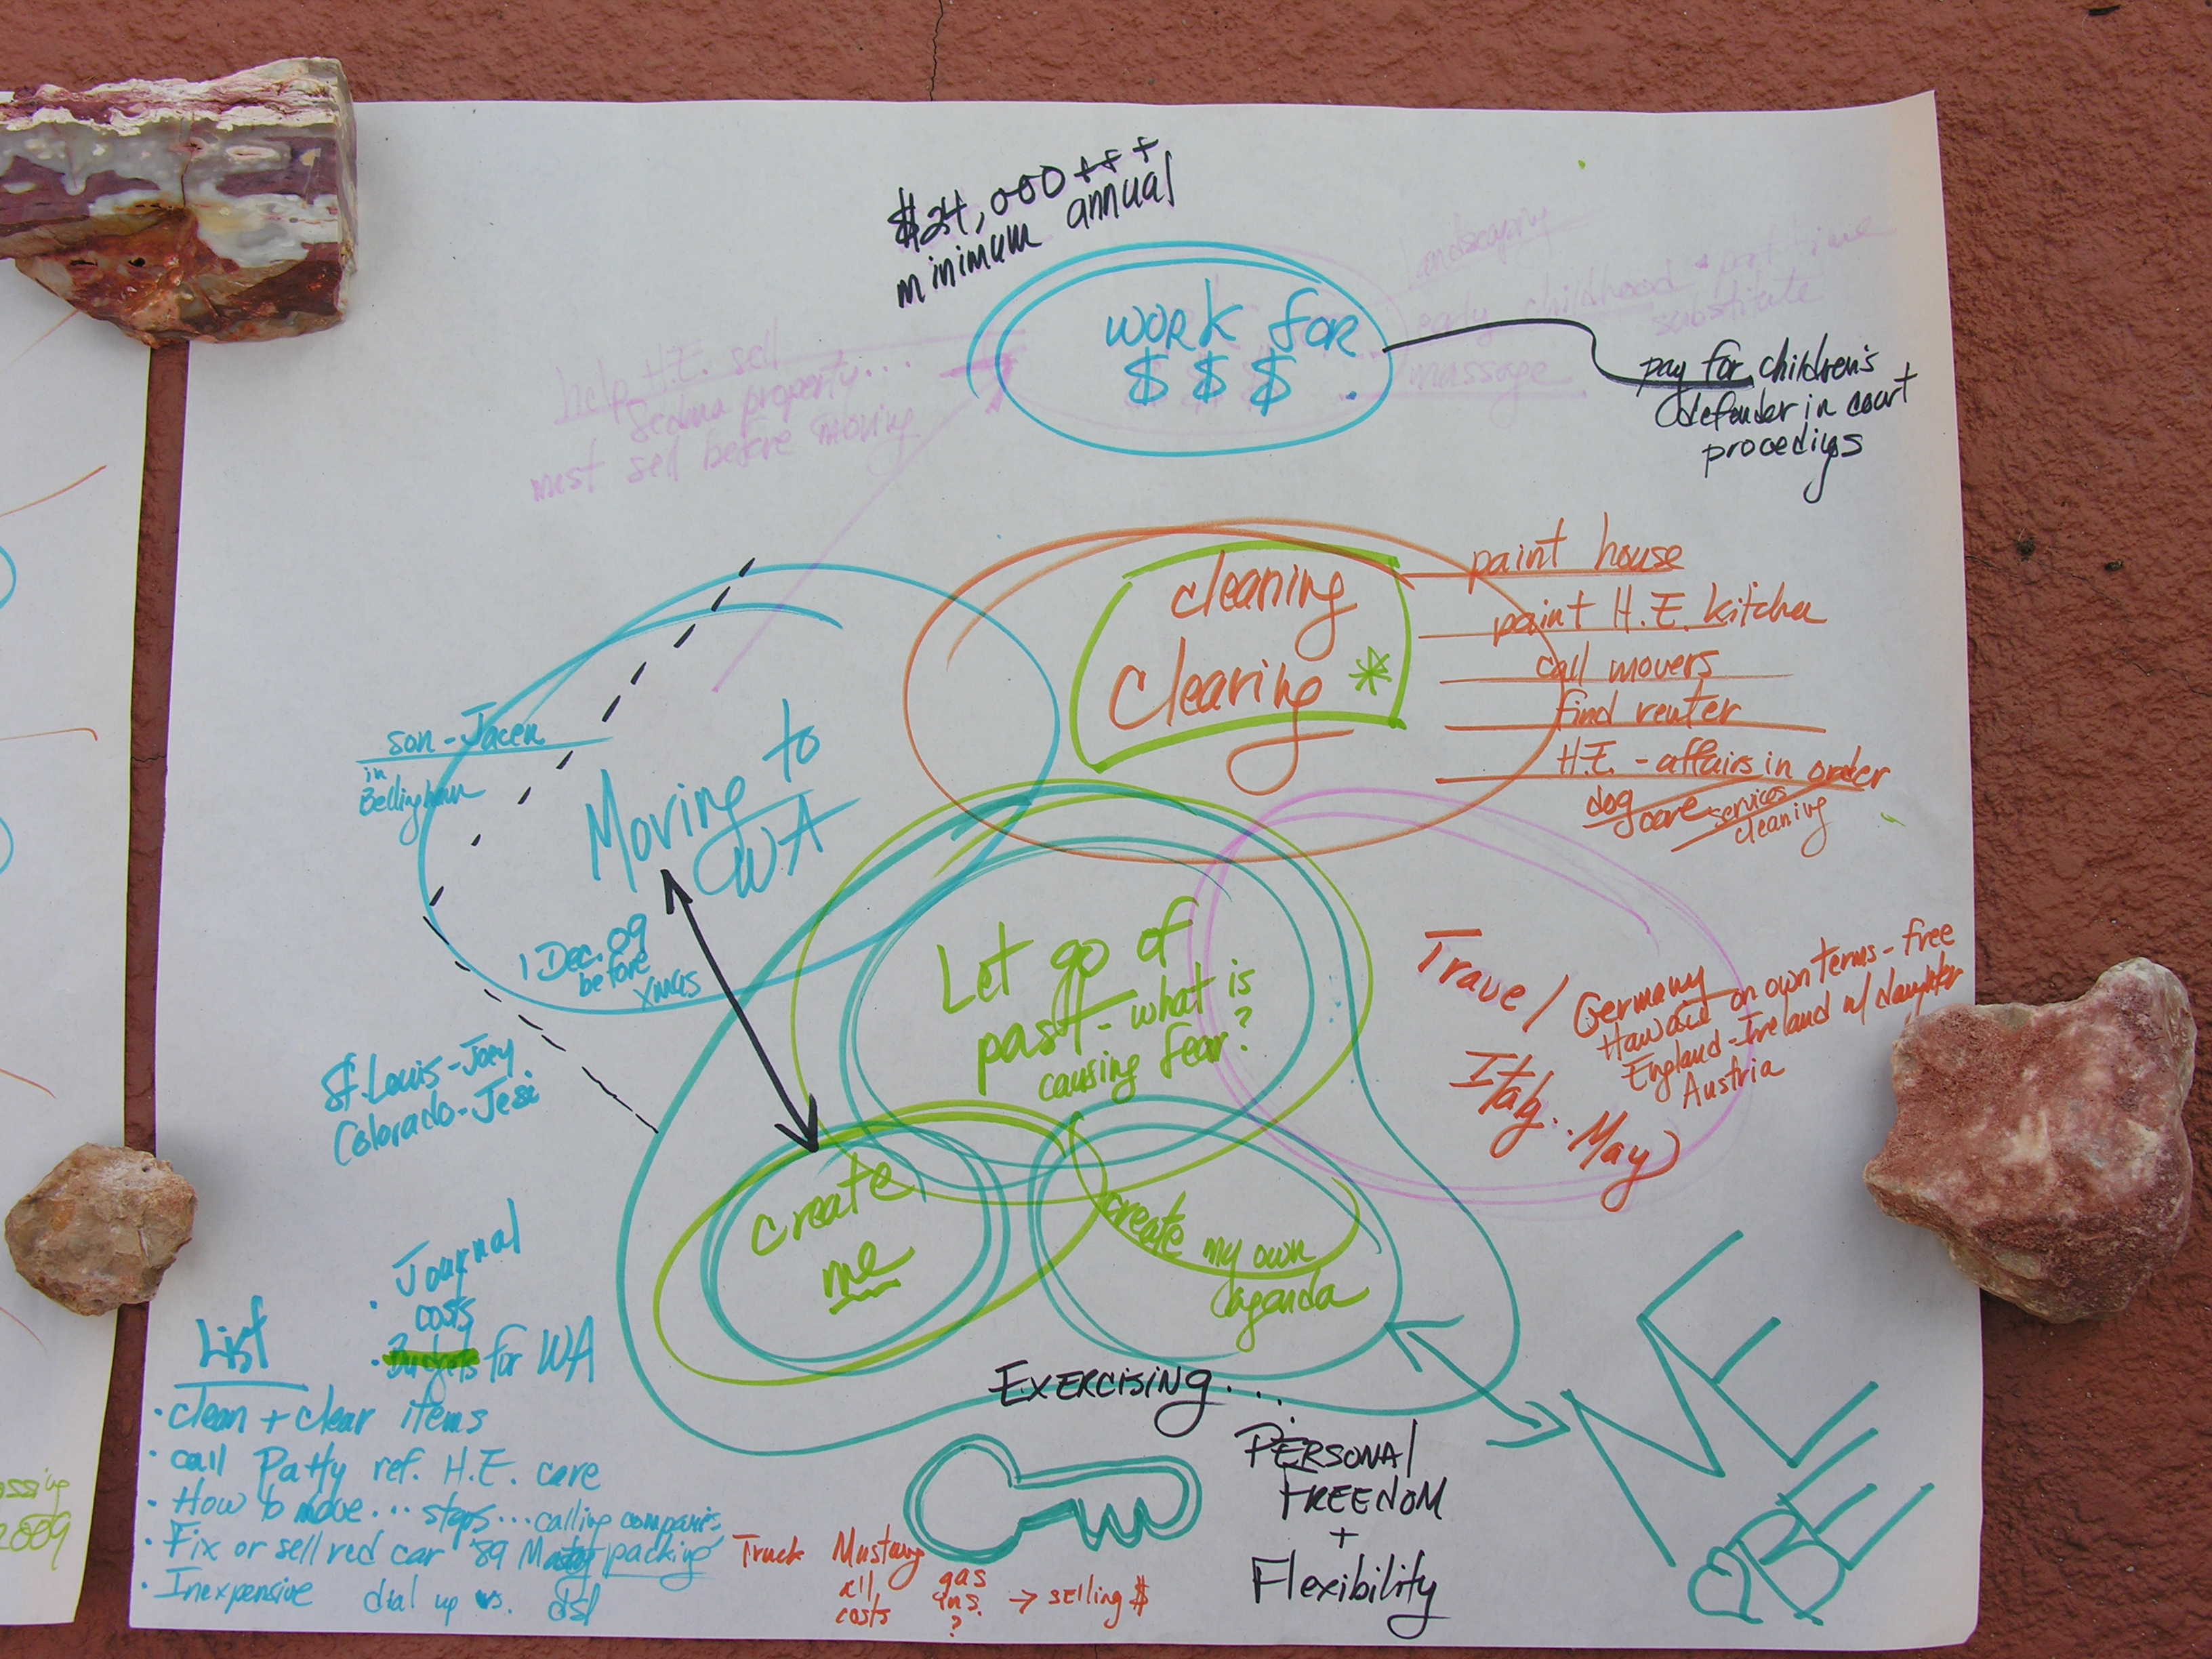 $24,000+++
minimum annual
work for
$ $ $
landscaping
early childhood • part time
substitute
massage
help H.E. sell
Sedona property...
must sell before moving
pay for children's
defender in court
procedings
cleaning
clearing *
paint house
paint H.E. kitchen
call movers
find renter
H.E. - affairs in order
dog
care services
cleaning
son - Jacen
in
Bellingham
Moving to
WA
1 Dec. 09
before
xmas
St. Louis - Joey
Colorado - Jesi
Let go of
past - what is
causing fear?
Travel
Germany
Hawaii on own terms - free
England - Ireland w/ daughter
Austria
Italy.. May
create
me
create my own
agenda
Journal
• costs
• Budgets for WA
List
• clean + clear items
• call Patty ref. H.E. care
• How to move... steps... calling companies,
• Fix or sell red car '89 packing
• Inexpensive dial up vs. dsl
Exercising...
Personal
Freedom
+
Flexibility
Truck Mustang
all gas
costs ins. → selling $
?
ME
BE
assing
2009